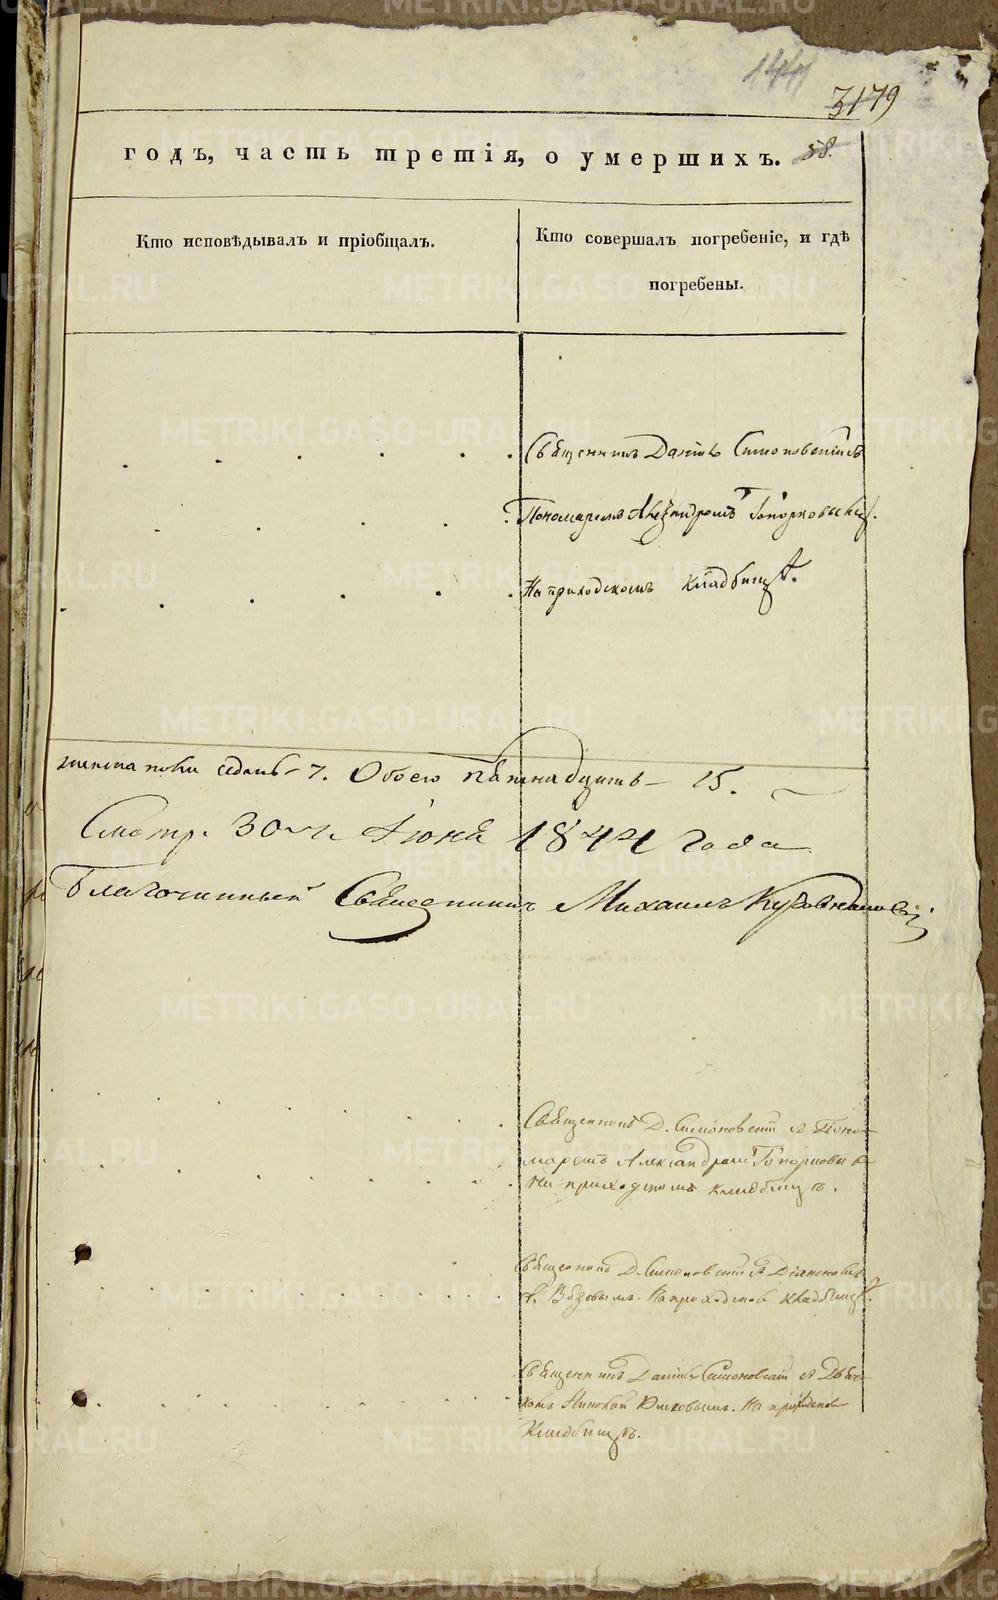 144
3179
годъ, часть третія, о умершихъ. 58.
Кто исповѣдывалъ и пріобщалъ.
Кто совершалъ погребеніе, и гдѣ
погребены.
Священникъ Даніилъ Симоновскій съ
Пономаремъ Александромъ Топорковымъ.
На приходскомъ кладбищѣ.
женска пола седмь - 7. Обоего пятнадцать - 15.
Смотр. 30 ч. Іюня 1844 года
Благочинный Священникъ Михаилъ
Священникъ Д. Симоновскій съ Поно-
маремъ Александромъ Топорковымъ
На приходскомъ кладбищѣ.
Священникъ Д. Симоновскій съ Дьякономъ
А. Вязовымъ. На приходскомъ кладбищѣ.
Священникъ Даніилъ Симоновскій съ Дьяч-
комъ. На приходскомъ
Кладбищѣ.
METRIKI.GASO-URAL.RU